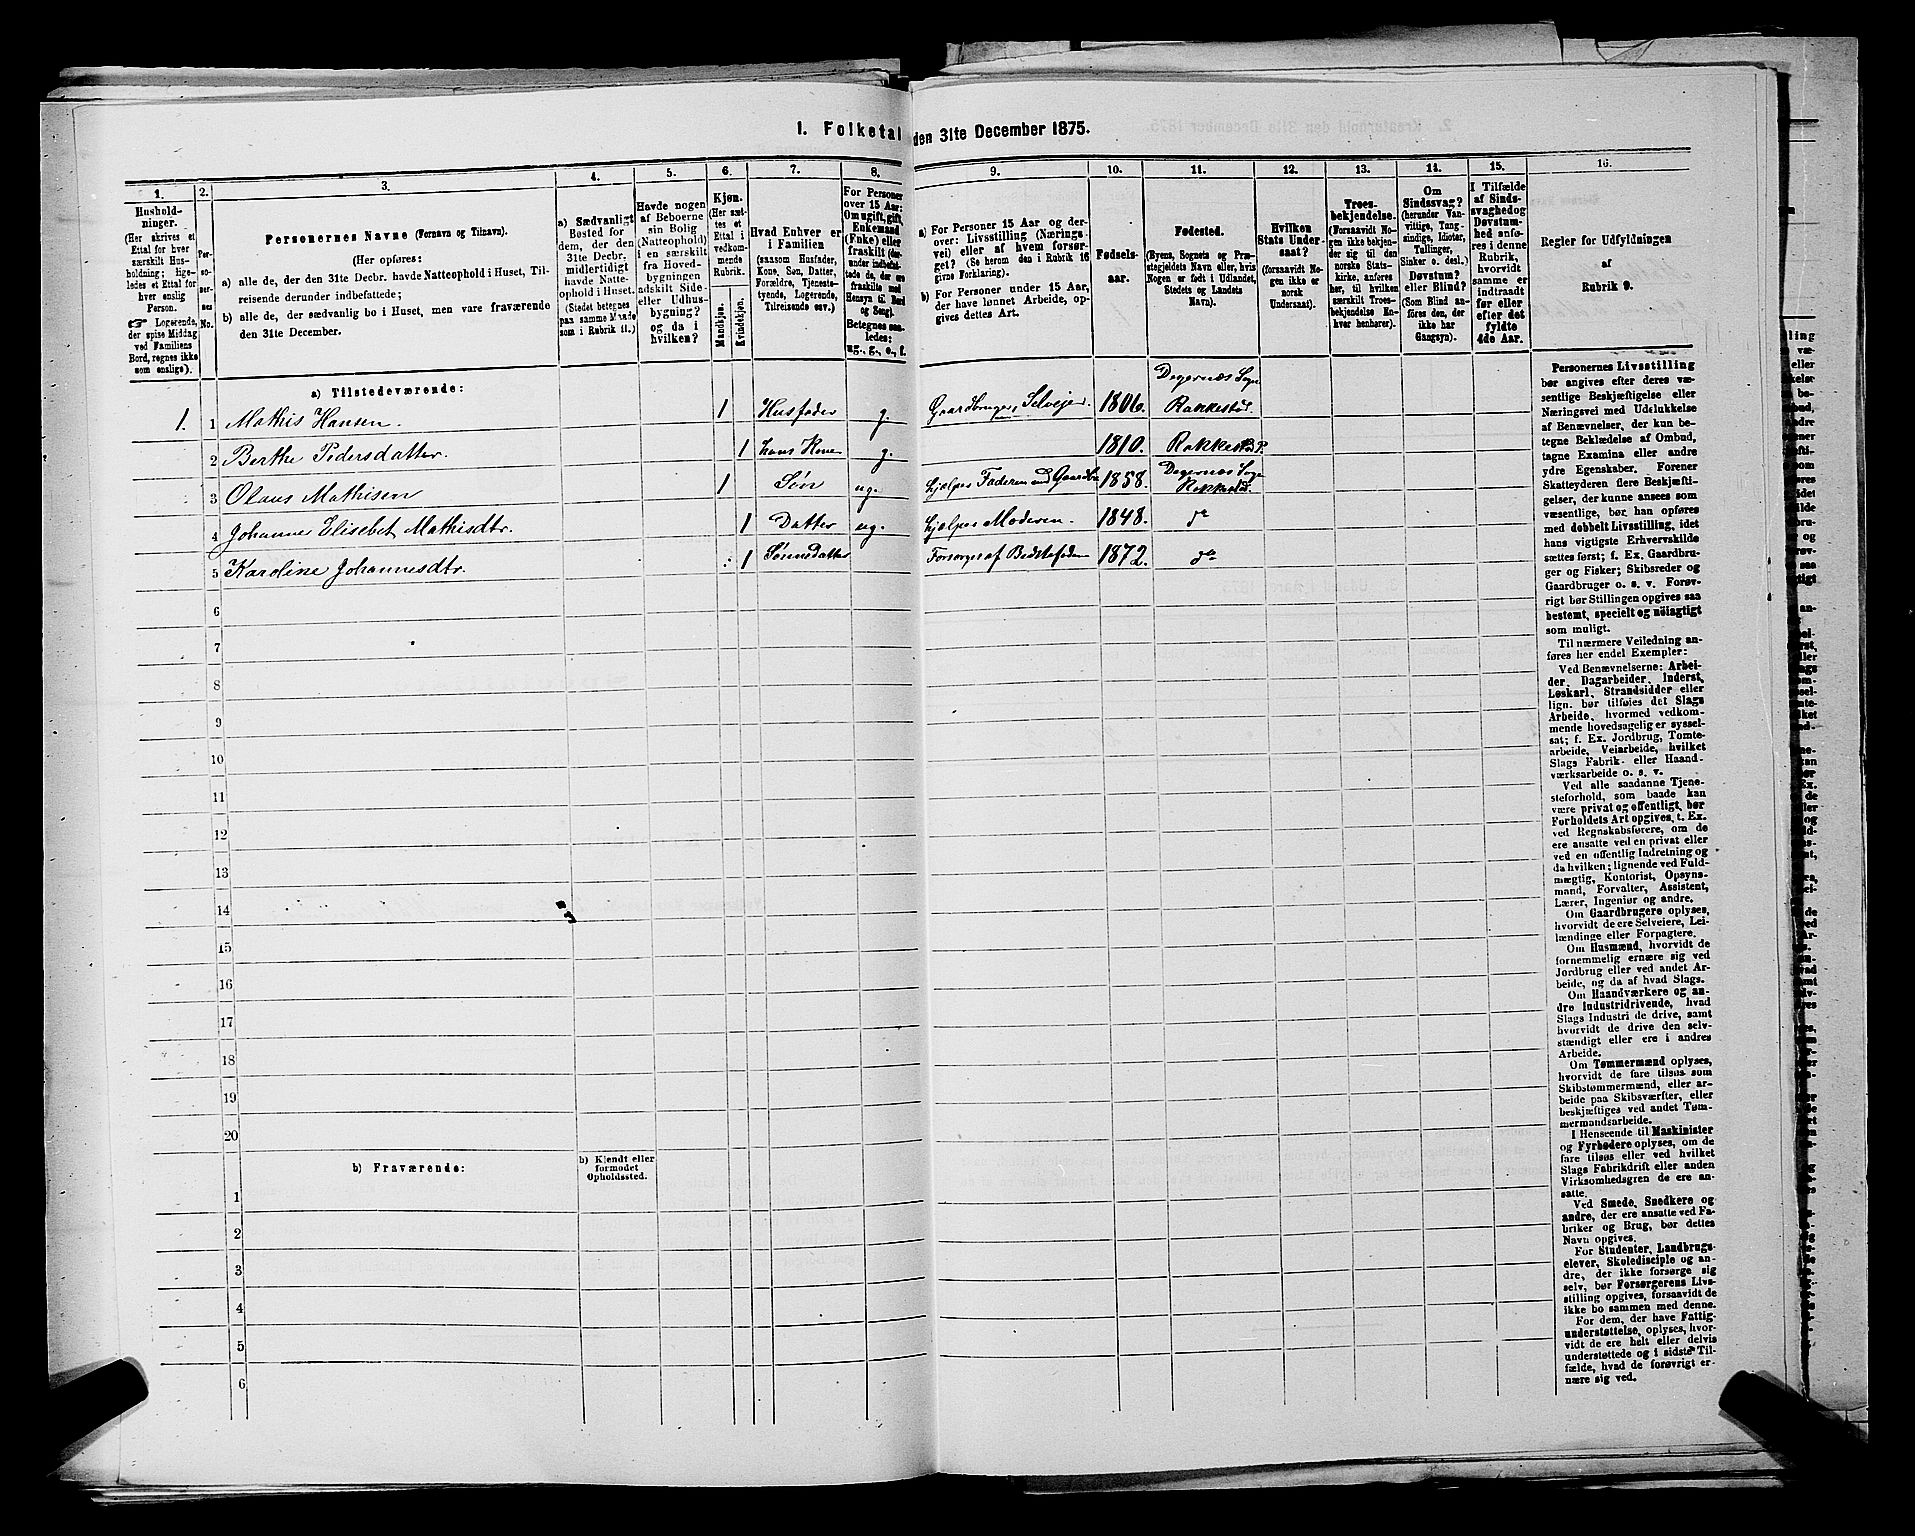 1. Folketal den 31te December 1875.
1. 2. 3. 4. 5. 6. 7. 8. 9. 10. 11. 12. 13. 14. 15. 16.
Husholdninger.
(Her skrives et
Ettal for hver
særskilt Husholdning; ligeledes et Ettal for
hver enslig
Person.
☞ Logerende,
der spise Middag
ved Familiens
Bord, regnes ikke
som enslige).
Personernes No.
Personernes Navne (Fornavn og Tilnavn).
(Her opføres:
a) alle de, der den 31te Decbr. havde Natteophold i Huset, Tilreisende derunder indbefattede;
b) alle de, der sædvanlig bo i Huset, men vare fraværende
den 31te December.
a) Sædvanligt
Bosted for
dem, der den
31te Decbr.
midlertidigt
havde Natteophold i Huset.
(Stedet betegnes
paa samme Maade
som i Rubrik 11.)
Havde nogen
af Beboerne
sin Bolig
(Natteophold)
i en særskilt
fra Hovedbygningen
adskilt Side- eller Udhusbygning?
og da i
hvilken?
Kjøn.
(Her sættes et
Ettal i
vedkommende
Rubrik.
Mandkjøn.
Kvindekjøn.
Hvad Enhver er
i Familien
(saasom Husfader,
Kone, Søn, Datter,
Forældre, Tjenestetyende, Logerende,
Tilreisende osv.)
For Personer
over 15 Aar:
Om ugift, gift,
Enkemand
(Enke) eller
fraskilt
Betegnes saaledes:
ug., g., e., f.
a) For Personer 15 Aar og derover: Livsstilling (Næringsvei) eller af hvem forsørget? (Se herom den i Rubrik 16
givne Forklaring).
b) For Personer under 15 Aar,
der have lønnet Arbeide, opgives dettes Art.
Fødselsaar.
Fødested.
(Byens, Sognets og Præstegjeldets Navn eller, hvis
Nogen er født i Udlandet,
Stedets og Landets
Navn).
Hvilken
Stats Undersaat?
(forsaavidt Nogen ikke er
norsk
Undersaat).
Troesbekjendelse.
(Forsaavidt Nogen ikke bekjender sig til den
norske Statskirke, anføres
her, til hvilken
særskilt Troesbekjendelse Enhver henhører).
Om
Sindssvag?
(herunder Vanvittige, Tungsindige, Idioter,
Tullinger,
Sinker o. desl.)
Døvstum?
eller Blind?
(Som Blind anføres den, der
ikke har
Gangsyn).
I Tilfælde
af Sindssvaghed og
Døvstumhed anføres i denne
Rubrik,
hvorvidt
samme er
indtraadt
før eller
efter det
fyldte
4de Aar.
Regler for Udfyldningen
af
Rubrik 9.
a) Tilstedeværende:
1. 1 Mathis Hansen. 1 Husfader g. Gaardbruger, Selveier 1806. Degernæs Sogn Rakkestad.
2 Berthe Pedersdatter. 1 hans Kone g. 1810. Rakkestad P.
3 Olaus Mathisen 1 Søn ug. hjælper Faderen med Gaardbr. 1858. Degernæs Sogn Rakkestad.
4 Johanne Elisebet Mathisdtr. 1 Datter ug. hjælper Moderen. 1848. do
5 Karoline Johannesdtr. 1 Sønnedatter Forsørges af Bedstefaderen 1872. do
6
7
8
9
10
11
12
13
14
15
16
17
18
19
20
b) Fraværende:
b) Kjendt eller
formodet
Opholdssted.
1
2
3
4
5
6
Personernes Livsstilling
bør angives efter deres væsentlige Beskjæftigelse eller
Næringsvei med Udelukkelse
af Benævnelser, der kun betegne Beklædelse af Ombud,
tagne Examina eller andre
ydre Egenskaber. Forener
Skatteyderen flere Beskjæftigelser, der kunne ansees som
væsentlige, bør han opføres
med dobbelt Livsstilling, idet
hans vigtigste Erhvervskilde
sættes først; f. Ex. Gaardbruger og Fisker; Skibsreder og
Gaardbruger o. s. v. Forøvrigt bør Stillingen opgives saa
bestemt, specielt og nøiagtigt
som muligt.
Til nærmere Veiledning anføres her endel Exempler:
Ved Benævnelserne: Arbeider, Dagarbeider, Inderst,
Løskarl, Strandsidder eller
lign. bør tilføies det Slags
Arbeide, hvormed vedkommende hovedsagelig er sysselsat; f. Ex. Jordbrug, Tomtearbeide, Veiarbeide, hvilket
Slags Fabrik- eller Haandværksarbeide o. s. v.
Ved alle saadanne Tjenesteforhold, som baade kan
være privat og offentligt, bør
Forholdets Art opgives, t. Ex.
ved Regnskabsførere, om de
ere ansatte ved en privat eller
ved en offentlig Indretning og
da hvilken; lignende ved Fuldmægtig, Kontorist, Opsynsmand, Forvalter, Assistent,
Lærer, Ingeniør og andre.
Om Gaardbrugere oplyses,
hvorvidt de ere Selveiere, Leilændinge eller Forpagtere.
Om Husmænd, hvorvidt de
fornemmelig ernære sig ved
Jordbrug eller ved andet Arbeide, og da af hvad Slags.
Om Haandværkere og andre Industridrivende, hvad
Slags Industri de drive, samt
hvorvidt de drive den selvstændigt eller ere i andres
Arbeide.
Om Tømmermænd oplyses,
hvorvidt de fare tilsøs som
Skibstømmermænd, eller arbeide paa Skibsværfter, eller
beskjæftiges ved andet Tømmermandsarbeide.
I Henseende til Maskinister
og Fyrbødere oplyses, om de
fare tilsøs eller ved hvilket
Slags Fabrikdrift eller anden
Virksomhedsgren de ere ansatte.
Ved Smede, Snedkere og
andre, der ere ansatte ved Fabriker og Brug, bør dettes
Navn opgives.
For Studenter, Landbrugselever, Skoledisciple og andre, der ikke forsørge sig
selv, bør Forsørgerens Livsstilling opgives, forsaavidt de
ikke bo sammen med denne.
For dem, der have Fattigunderstøttelse, oplyses, hvorvidt de ere helt eller delvis
understøttede og i sidste Tilfælde, hvad de forøvrigt ernære sig ved.